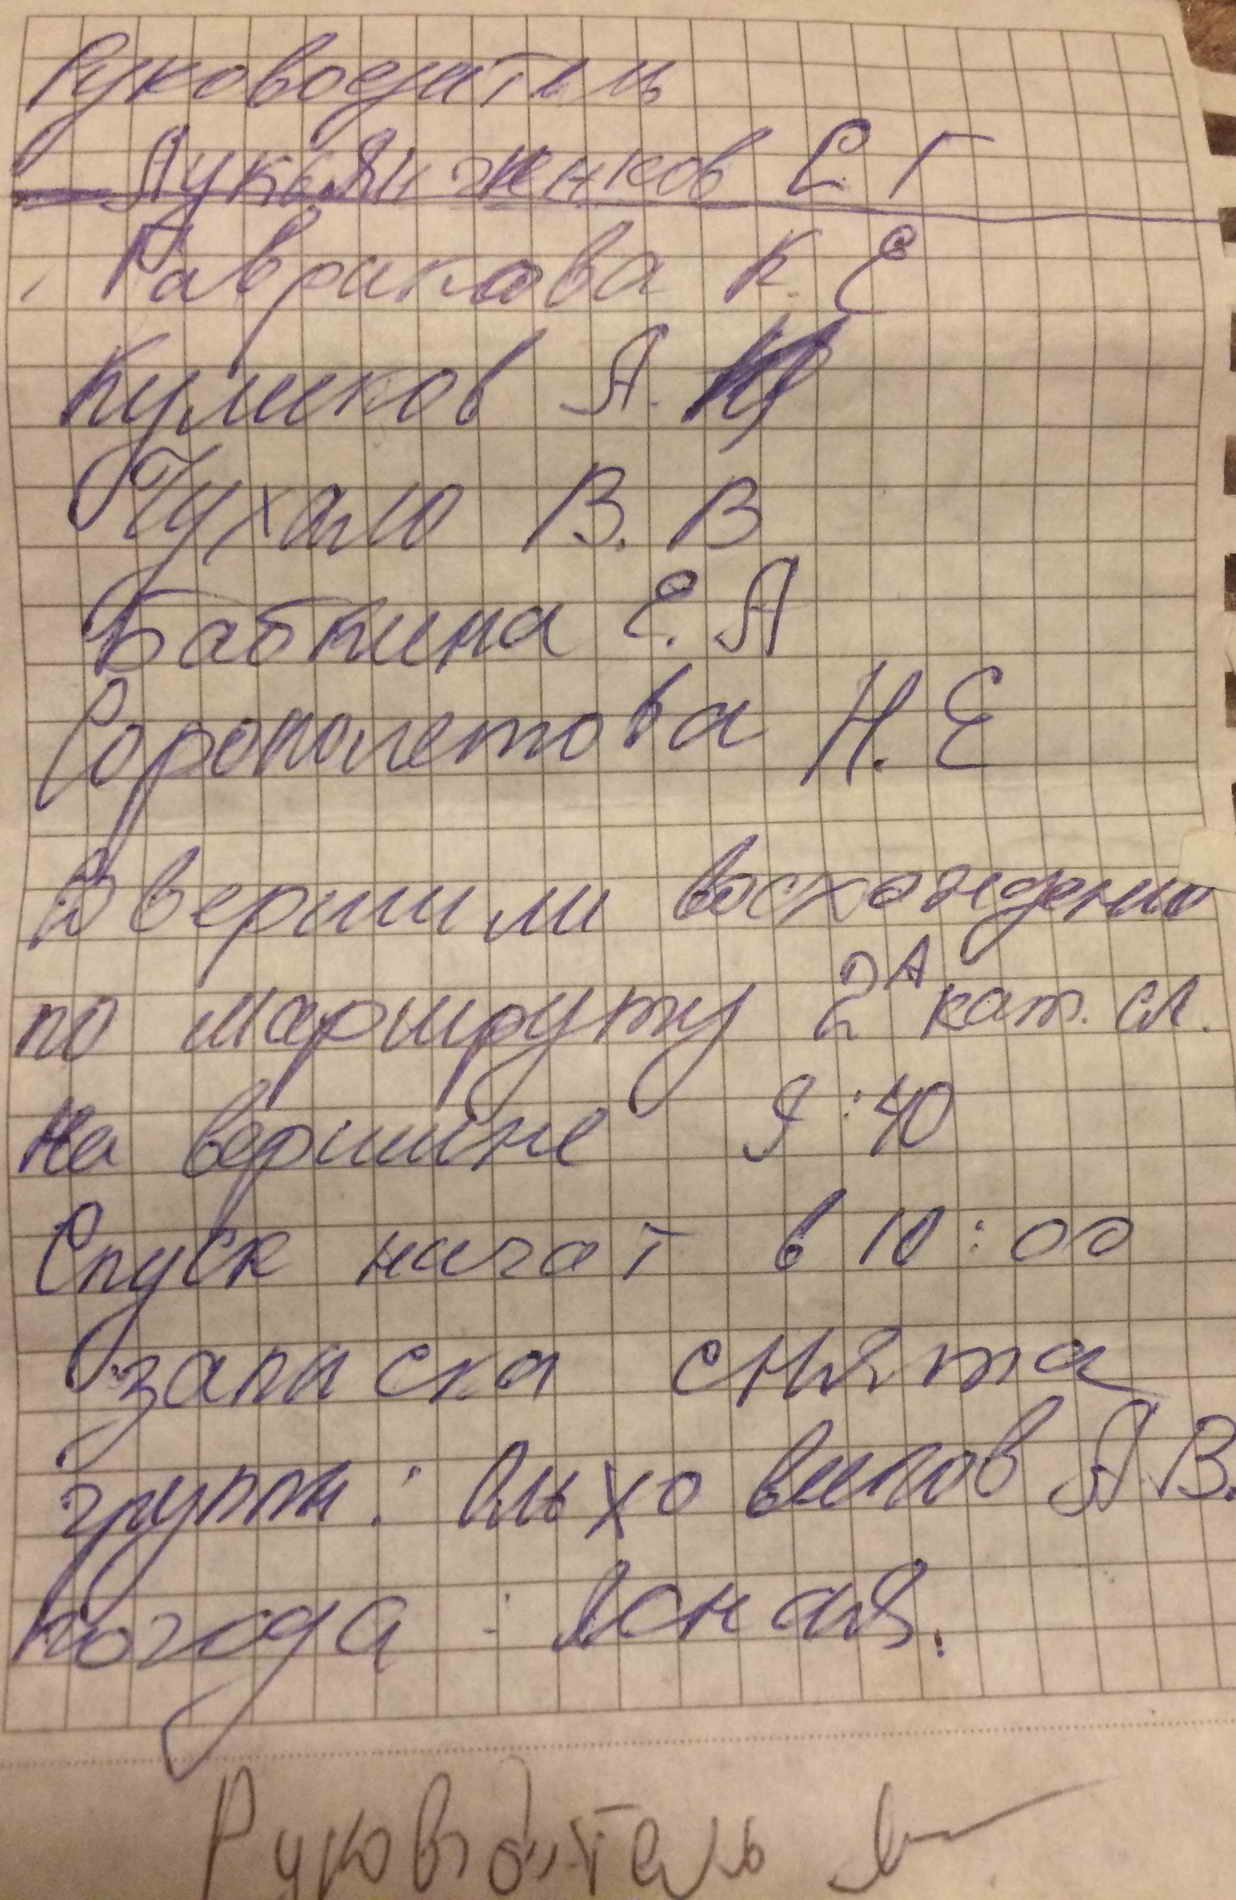 Руководитель
Лукьянченков Е Г
Гаврикова К. Е
Куликов А.
Чухало В. В
Бабкина Е. А
Сорополетова Н. Е
Овершили восхождение
по маршруту 2А кат. сл.
На вершине 9:40
Спуск начат в 10:00
записка снята
группы: А. В.
погода: ясная.
Руководитель